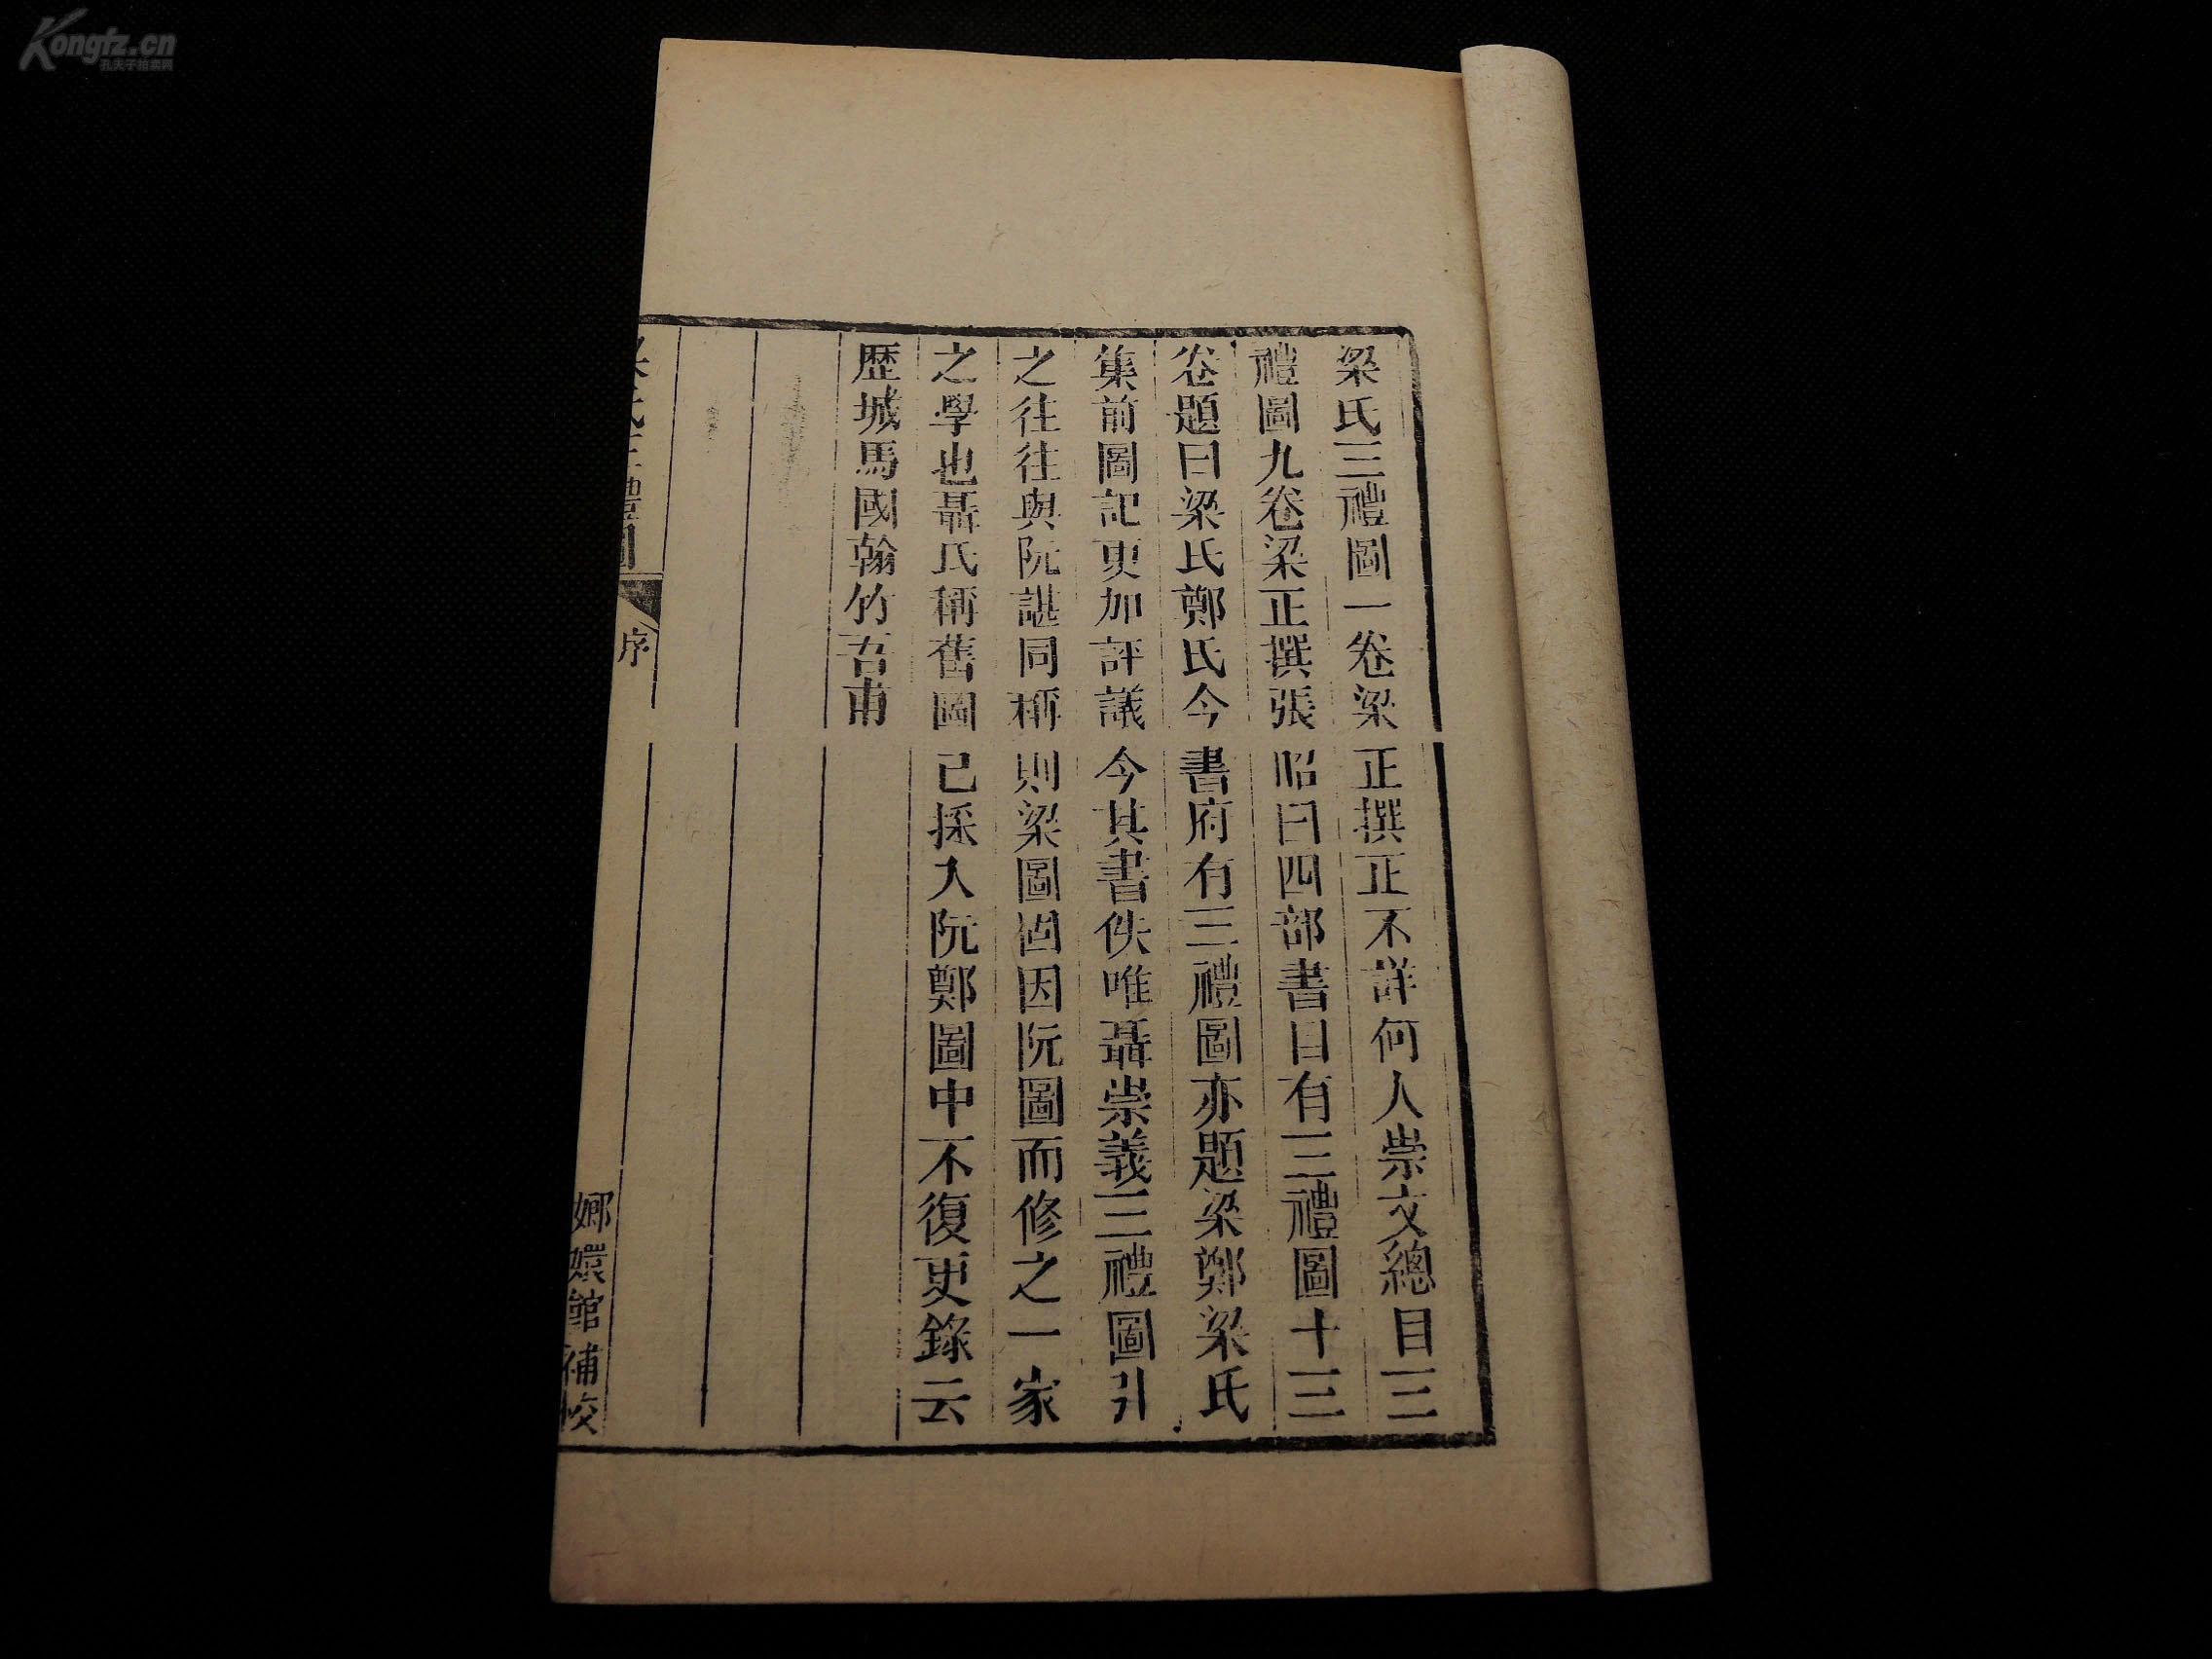 Kongfz.cn
孔夫子拍卖网
梁氏三禮圖一卷梁正撰正不詳何人崇文總目三
禮圖九卷梁正撰張昭曰四部書目有三禮圖十三
卷題曰梁氏鄭氏今書府有三禮圖亦題梁鄭梁氏
集前圖記更加評議今其書佚唯聶崇義三禮圖引
之往往與阮諶同稱則梁圖固因阮圖而修之一家
之學也聶氏稱舊圖已採入阮鄭圖中不復更錄云
歷城馬國翰竹吾甫
氏三禮圖
序
嫏嬛館補校